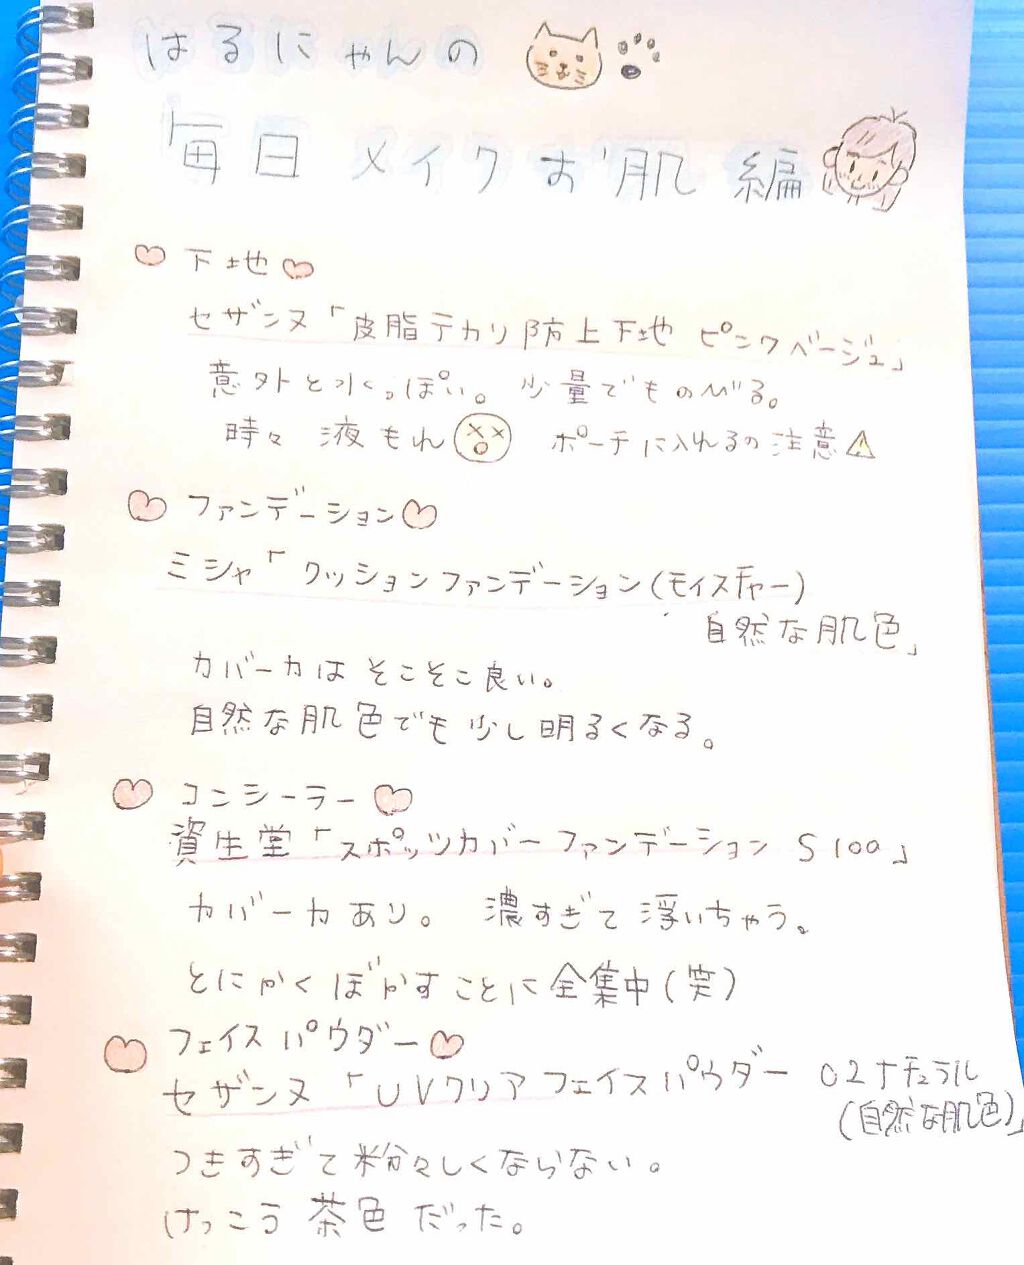 はるにゃんの
毎日メイクお肌編
下地
セザンヌ「皮脂テカリ防止下地 ピンクベージュ」
意外と水っぽい。少量でものびる。
時々液もれ ポーチに入れるの注意
ファンデーション
ミシャ「クッションファンデーション(モイスチャー)
自然な肌色」
カバー力はそこそこ良い。
自然な肌色でも少し明るくなる。
コンシーラー
資生堂「スポッツカバーファンデーション S100」
カバー力あり。濃すぎて浮いちゃう。
とにかくぼかすことに全集中(笑)
フェイスパウダー
セザンヌ「UVクリアフェイスパウダー 02ナチュラル
(自然な肌色)」
つきすぎて粉々しくならない。
けっこう茶色だった。